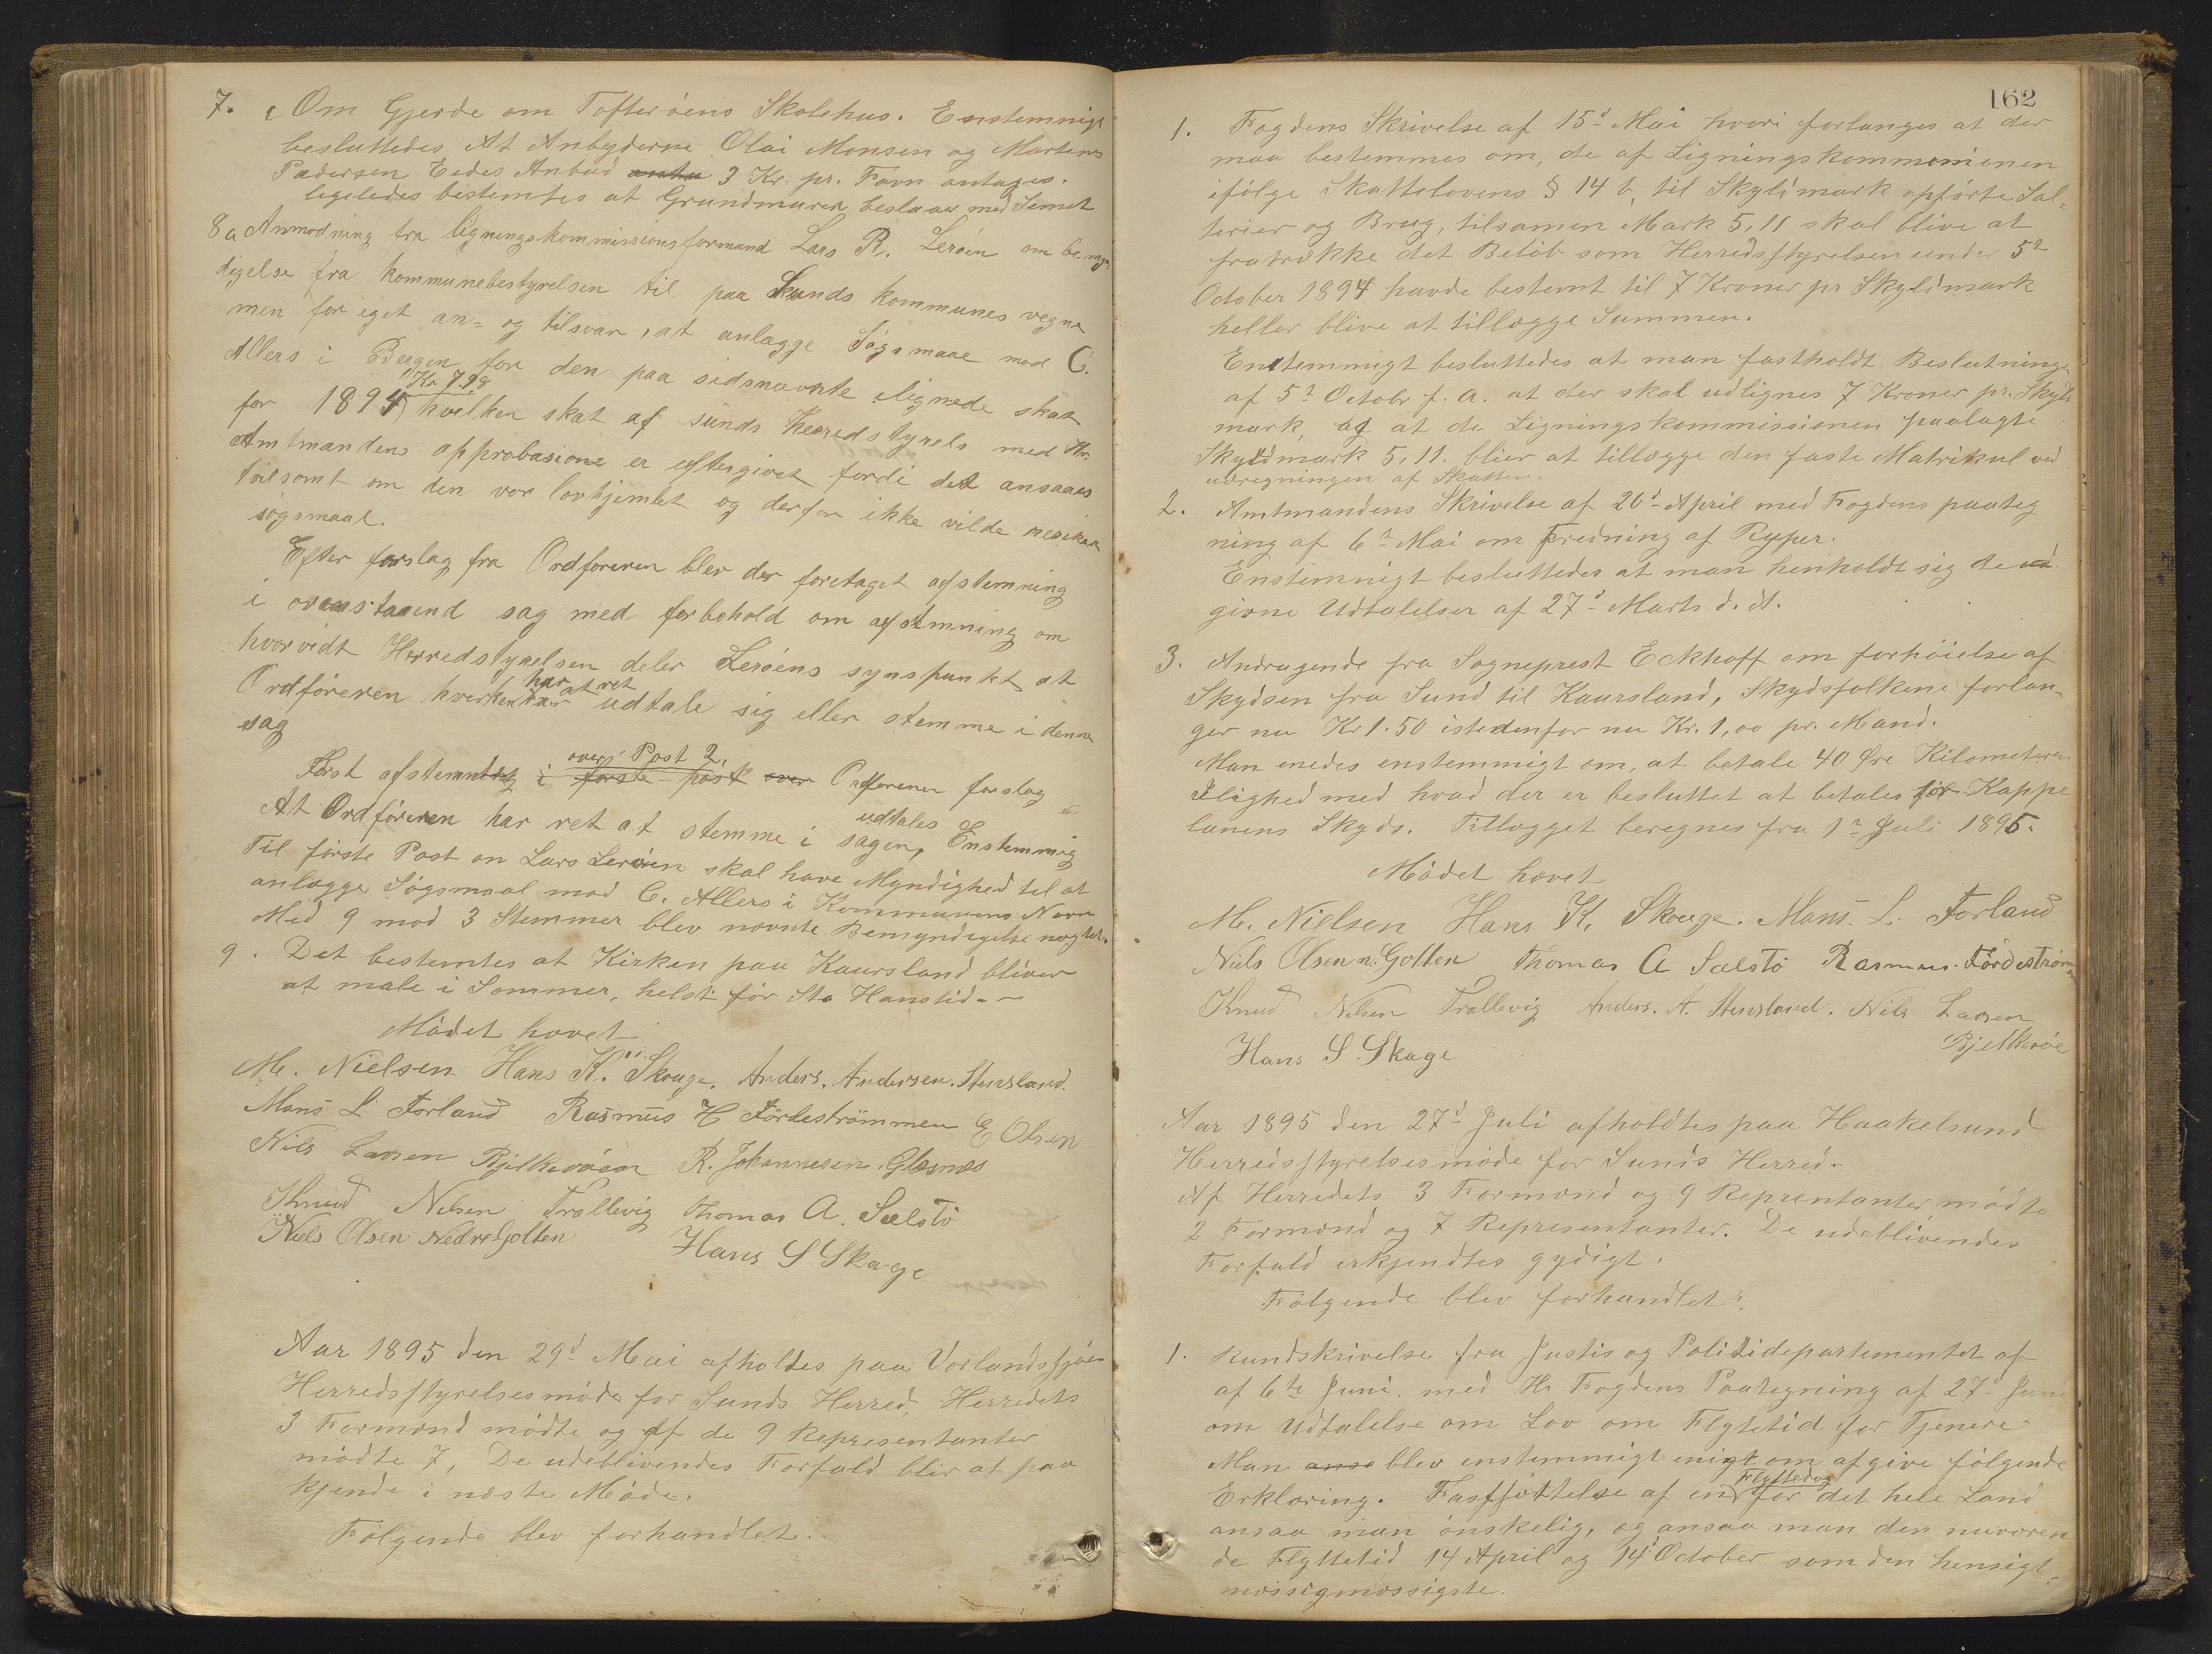 7. Om Gjerde om Tofterøens Skolehus. Enstemnigt
besluttedes At Anbyderne Olai Monsen og Martines
Pedersen Eedes Anbud anta 3 Kr. pr. Favn antages.
ligeledes bestemtes at Grundmuren beslaaes med Sement
8a Anmodning fra ligningskommissionsformand Lars R. Lerøen om bemyn
digelse fra kommunebestyrelsen til paa Sunds kommunes vegne
men for eget an- og tilsvar, at anlægge Søgsmaal mod C.
Allers i Bergen for den paa sidsnævnte lignede skat
Kr 7.98
for 1894, hvilken skat af sunds Herredstyrels med Hr.
Amtmandens approbasione er eftergivet fordi det ansaaes
tvilsomt om den var lovhjemlet og derfor ikke vilde resikere
søgsmaal.
Efter forslag fra Ordføreren blev der foretaget afstemning
i ovenstaaend sag med forbehold om afstemning om
hvorvidt Herredstyrelsen deler Lerøens synspunkt at
har at ret
Ordføreren hverken har udtale sig eller stemme i denne
sag
over Post 2,
Først afstemning i første post over Ordføreren forslag
At Ordføreren har ret at stemme i sagen, Enstemmig
udtales
Til første Post om Lars Lerøen skal have Myndighed til at
anlægge Søgsmaal mod C. Allers i Kommunens Navn
Med 9 mod 3 Stemmer blev nævnte Bemyndigelse nægtet.
9. Det bestemtes at Kirken paa Kaursland bliver
at male i Sommer, helst før Sta Hanstid.
Mødet hævet
M. Nielsen Hans K. Skouge. Anders. Andersen. Stensland.
Mons L Forland Rasmus H Førdestrømmen E Olsen
Nils Larsen Bjelkerøen R. Johannesen Glesnæs
Knud Nilsen Trællevig Thomas A. Sælstø
Niels Olsen Nedre Golten Hans S Skage
Aar 1895 den 29d Mai afholdes paa Vorlandssjøen
Herredsstyrelsesmøde for Sunds Herred, Herredets
3 Formænd mødte og af de 9 Representanter
mødte 7, De udeblivendes Forfald blir at paa
kjende i næste Møde.
Følgende blev forhandlet.
162
1. Fogdens Skrivelse af 15d Mai hvori forlanges at der
maa bestemmes om, de af Ligningskommsionen
ifølge Skattelovens § 14 b, til Skyldmark opførte Sal-
terier og Brug, tilsamen Mark 5,11 skal blive at
fratrække det Beløb som Herredsstyrelsen under 5t
October 1894 havde bestemt til 7 Kroner pr Skyldmark
heller blive at tillægge Summen.
Enstemmigt besluttedes at man fastholdt Beslutningen
af 5t Octobr f. A. at der skal udlignes 7 Kroner pr. Skyld
mark, og at de Ligningskommissionen paalagte
Skyldmark 5,11. blier at tillægge den faste Matrikul ved
udregningen af Skatten.
2. Amtmandens Skrivelse af 26d April med Fogdens paateg
ning af 6t Mai om Fredning af Ryper.
Enstemnigt besluttedes at man henholdt sig de ud
givne Udtalelser af 27d Marts d. A.
3. Andragende fra Sogneprest Eckhoff om forhøielse af
Skydsen fra Sund til Kaursland, Skydsfolkene forlan-
ger nu Kr 1.50 istedenfor nu Kr. 1,00 pr. Mand.
Man enedes enstemmigt om, at betale 40 Øre Kilometeren
Ilighed med hvad der er besluttet at betales for Kappe
lanens Skyds. Tillægget beregnes fra 1ste Juli 1895.
Mødet hævet
M. Nielsen Hans K. Skouge. Mons L. Forland
Niels Olsen n. Golten Thomas A Sælstø Rasmus Førdestrømen
Knud Nilsen Trællevig Anders. A. Stensland. Nils Larsen
Bjelkerøe
Hans S Skage
Aar 1895 den 27d Juli afholdtes paa Haakelsund
Herredsstyrelsesmøde for Sunds Herred.
Af Herredets 3 Formænd og 9 Reprentanter mødte
2 Formænd og 7 Representanter. De udeblivendes
Forfald erkjendtes gydigt.
Følgende blev forhandlet:
1. Rundskrivelse fra Justis og Politidepartementet af
af 6te Juni, med Hr Fogdens Paategning af 27d Juni
om Udtalelse om Lov om Flytetid for Tjenere
Man ansa blev enstemmigt enigt om afgive følgende
Flyttedag
Erklæring. Fastsættelse af en for det hele Land
ansaa man ønskelig, og ansaa man den nuværen
de Flyttetid 14 April og 14 October som den hensigt-
mæssigmæssigste.